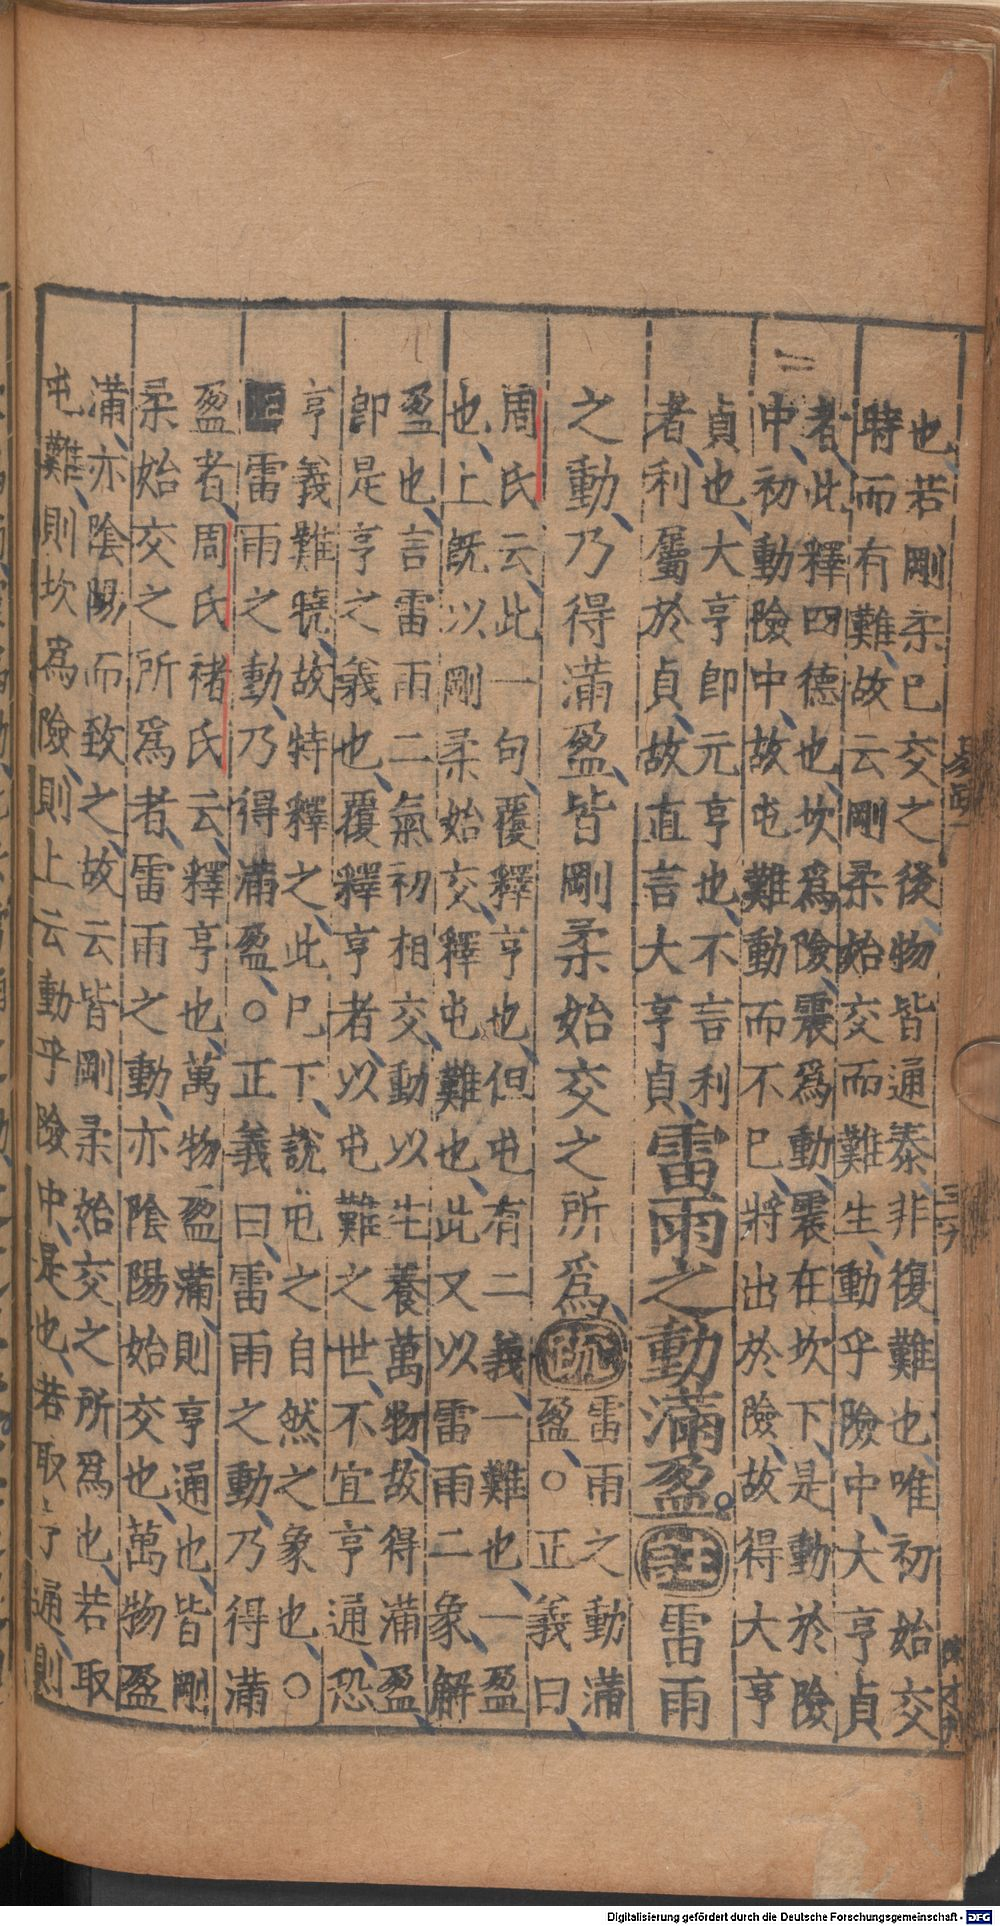 也若剛柔已交之後物皆通泰非復難也唯初始交
時而有難故云剛柔始交而難生動乎險中大亨貞
者此釋四德也坎爲險震爲動震在坎下是動於險
中初動險中故屯難動而不已將出於險故得大亨
貞也大亨即元亨也不言利
者利屬於貞故直言大亨貞
雷雨之動滿盈。註雷雨
之動乃得滿盈皆剛柔始交之所爲疏
雷雨之動滿
盈○正義曰
周氏云此一句覆釋亨也但屯有二義一難也一盈
也上既以剛柔始交釋屯難也此又以雷雨二象解
盈也言雷雨二氣初相交動以生養萬物故得滿盈
即是亨之義也覆釋亨者以屯難之世不宜亨通恐
亨義難曉故特釋之此已下說屯之自然之象也○
註雷雨之動乃得滿盈○正義曰雷雨之動乃得滿
盈者周氏褚氏云釋亨也萬物盈滿則亨通也皆剛
柔始交之所爲者雷雨之動亦陰陽始交也萬物盈
滿亦陰陽而致之故云皆剛柔始交之所爲也若取
屯難則坎爲險則上云動乎險中是也若取亨通則
Digitalisierung gefördert durch die Deutsche Forschungsgemeinschaft - DFG